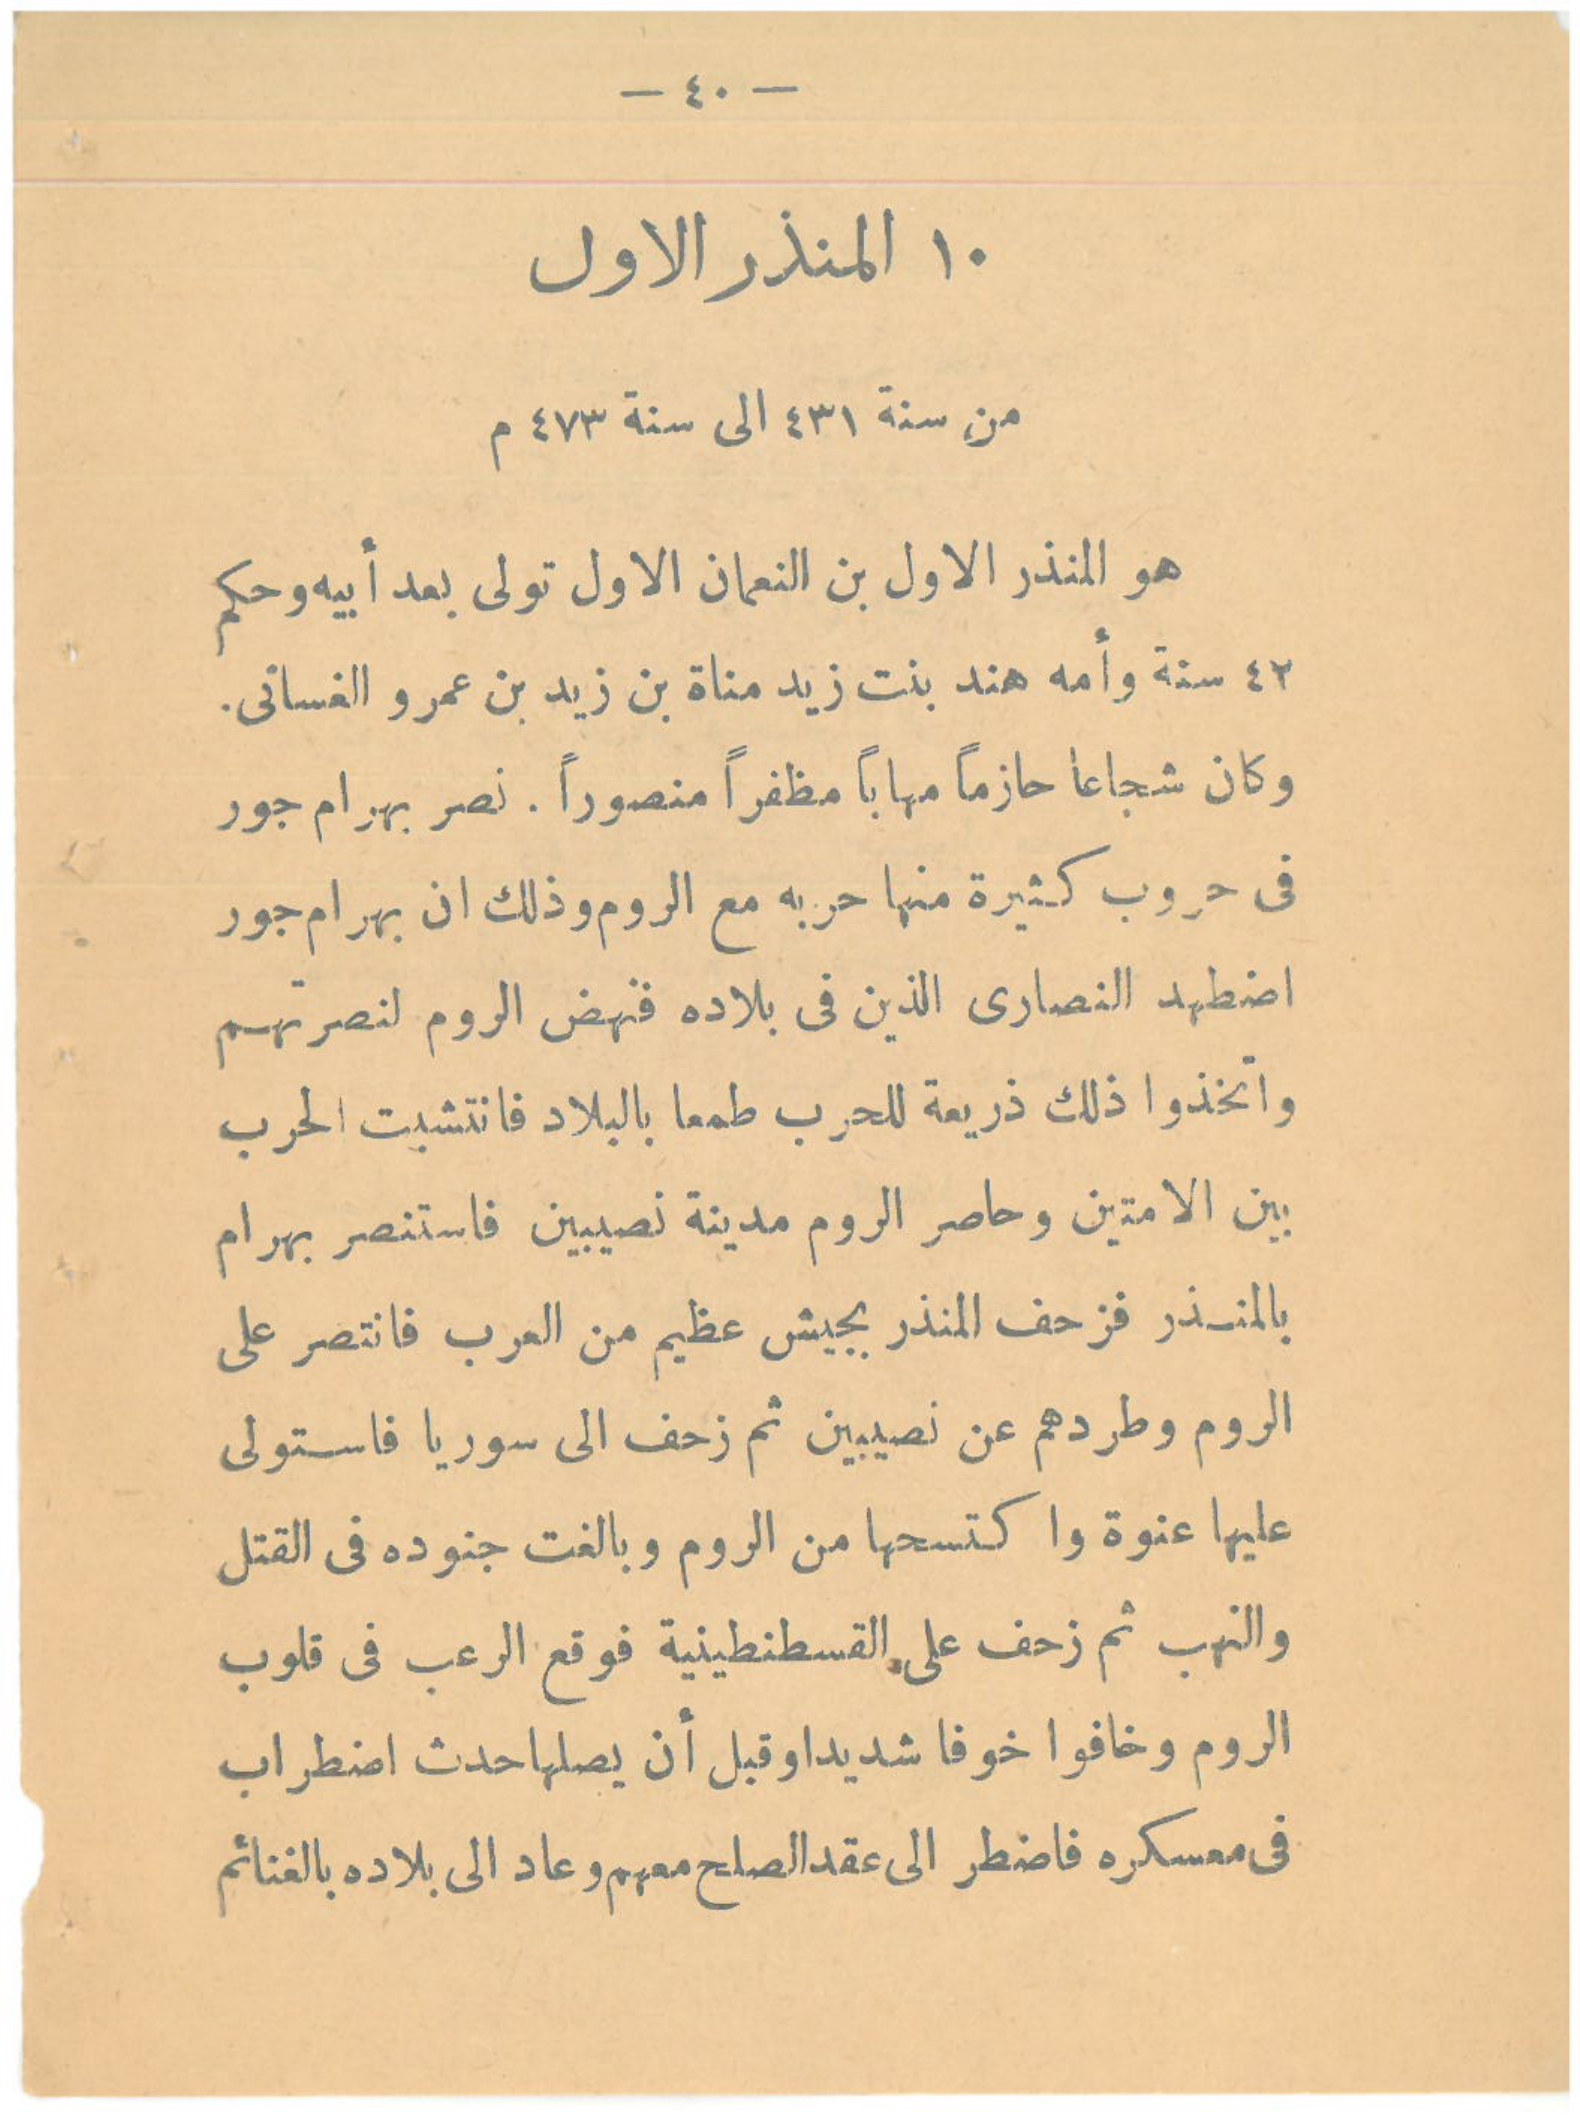 — ٤٠ —
١٠ المنذر الاول
من سنة ٤٣١ الى سنة ٤٧٣ م
هو المنذر الاول بن النعمان الاول تولى بعد أبيه وحكم
٤٢ سنة وأمه هند بنت زيد مناة بن زيد بن عمرو الغسانى.
وكان شجاعا حازماً مهاباً مظفراً منصوراً . نصر بهرام جور
فى حروب كثيرة منها حربه مع الروم وذلك ان بهرام جور
اضطهد النصارى الذين فى بلاده فنهض الروم لنصرتهم
واتخذوا ذلك ذريعة للحرب طمعا بالبلاد فانتشبت الحرب
بين الامتين وحاصر الروم مدينة نصيبين فاستنصر بهرام
بالمنـذر فزحف المنذر بجيش عظيم من العرب فانتصر على
الروم وطردهم عن نصيبين ثم زحف الى سوريا فاستولى
عليها عنوة واكتسحها من الروم وبالغت جنوده فى القتل
والنهب ثم زحف على القسطنطينية فوقع الرعب فى قلوب
الروم وخافوا خوفا شديدا وقبل أن يصلها حدث اضطراب
فى معسكره فاضطر الى عقد الصلح معهم وعاد الى بلاده بالغنائم